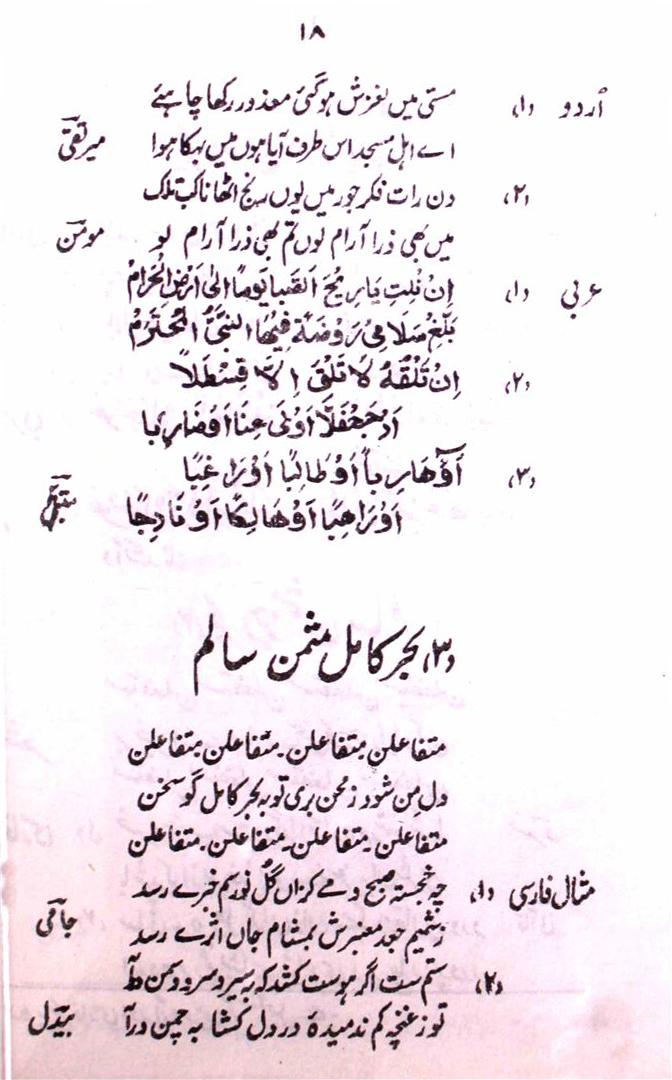 ۱۸
اُردو (۱) مستی میں لغزش ہوگئی معذور رکھا چاہئے
اے اہلِ مسجد اس طرف آیا ہوں میں بہکا ہوا میر تقی
(۲) دن رات فکر جور میں یوں رنج اٹھانا کب تلک
میں بھی ذرا آرام لوں تم بھی ذرا آرام لو مومن
عربی (۱) اِنْ نِلْتِ یَا رِیْحَ الصَّبَا یَوْمًا اِلٰی اَرْضِ الْحَرَامْ
بَلِّغْ سَلَامِیْ رَوْضَۃً فِیْهَا النَّبِیُّ الْمُحْتَرَمْ
(۲) اِنْ تَلْقَهُ لَا تَلْقَ اِلَّا قَسْطَلًا
اَوْ جَحْفَلًا اَوْ طَاعِنًا اَوْ ضَارِبًا
(۳) اَوْ هَارِبًا اَوْ طَالِبًا اَوْ رَاغِبًا
اَوْ رَاهِبًا اَوْ هَالِكًا اَوْ نَادِبًا متنبی
(۳) بحر کامل مثمن سالم
متفاعلن متفاعلن۔ متفاعلن متفاعلن
دل من شود ز محن بری تو بہ بحر کامل گو سخن
متفاعلن۔ متفاعلن۔ متفاعلن۔ متفاعلن
مثال فارسی (۱) چہ خجستہ صبح دمے کزاں گل نورم خبرے رسد
ز شمیم جعد معنبرش بمشام جاں اثرے رسد جامی
(۲) ستم ست اگر ہوست کشد کہ بسیر سرو و سمن درآ
تو ز غنچہ کم ندمیدۂ در دل کشا بہ چمن درآ بیدل